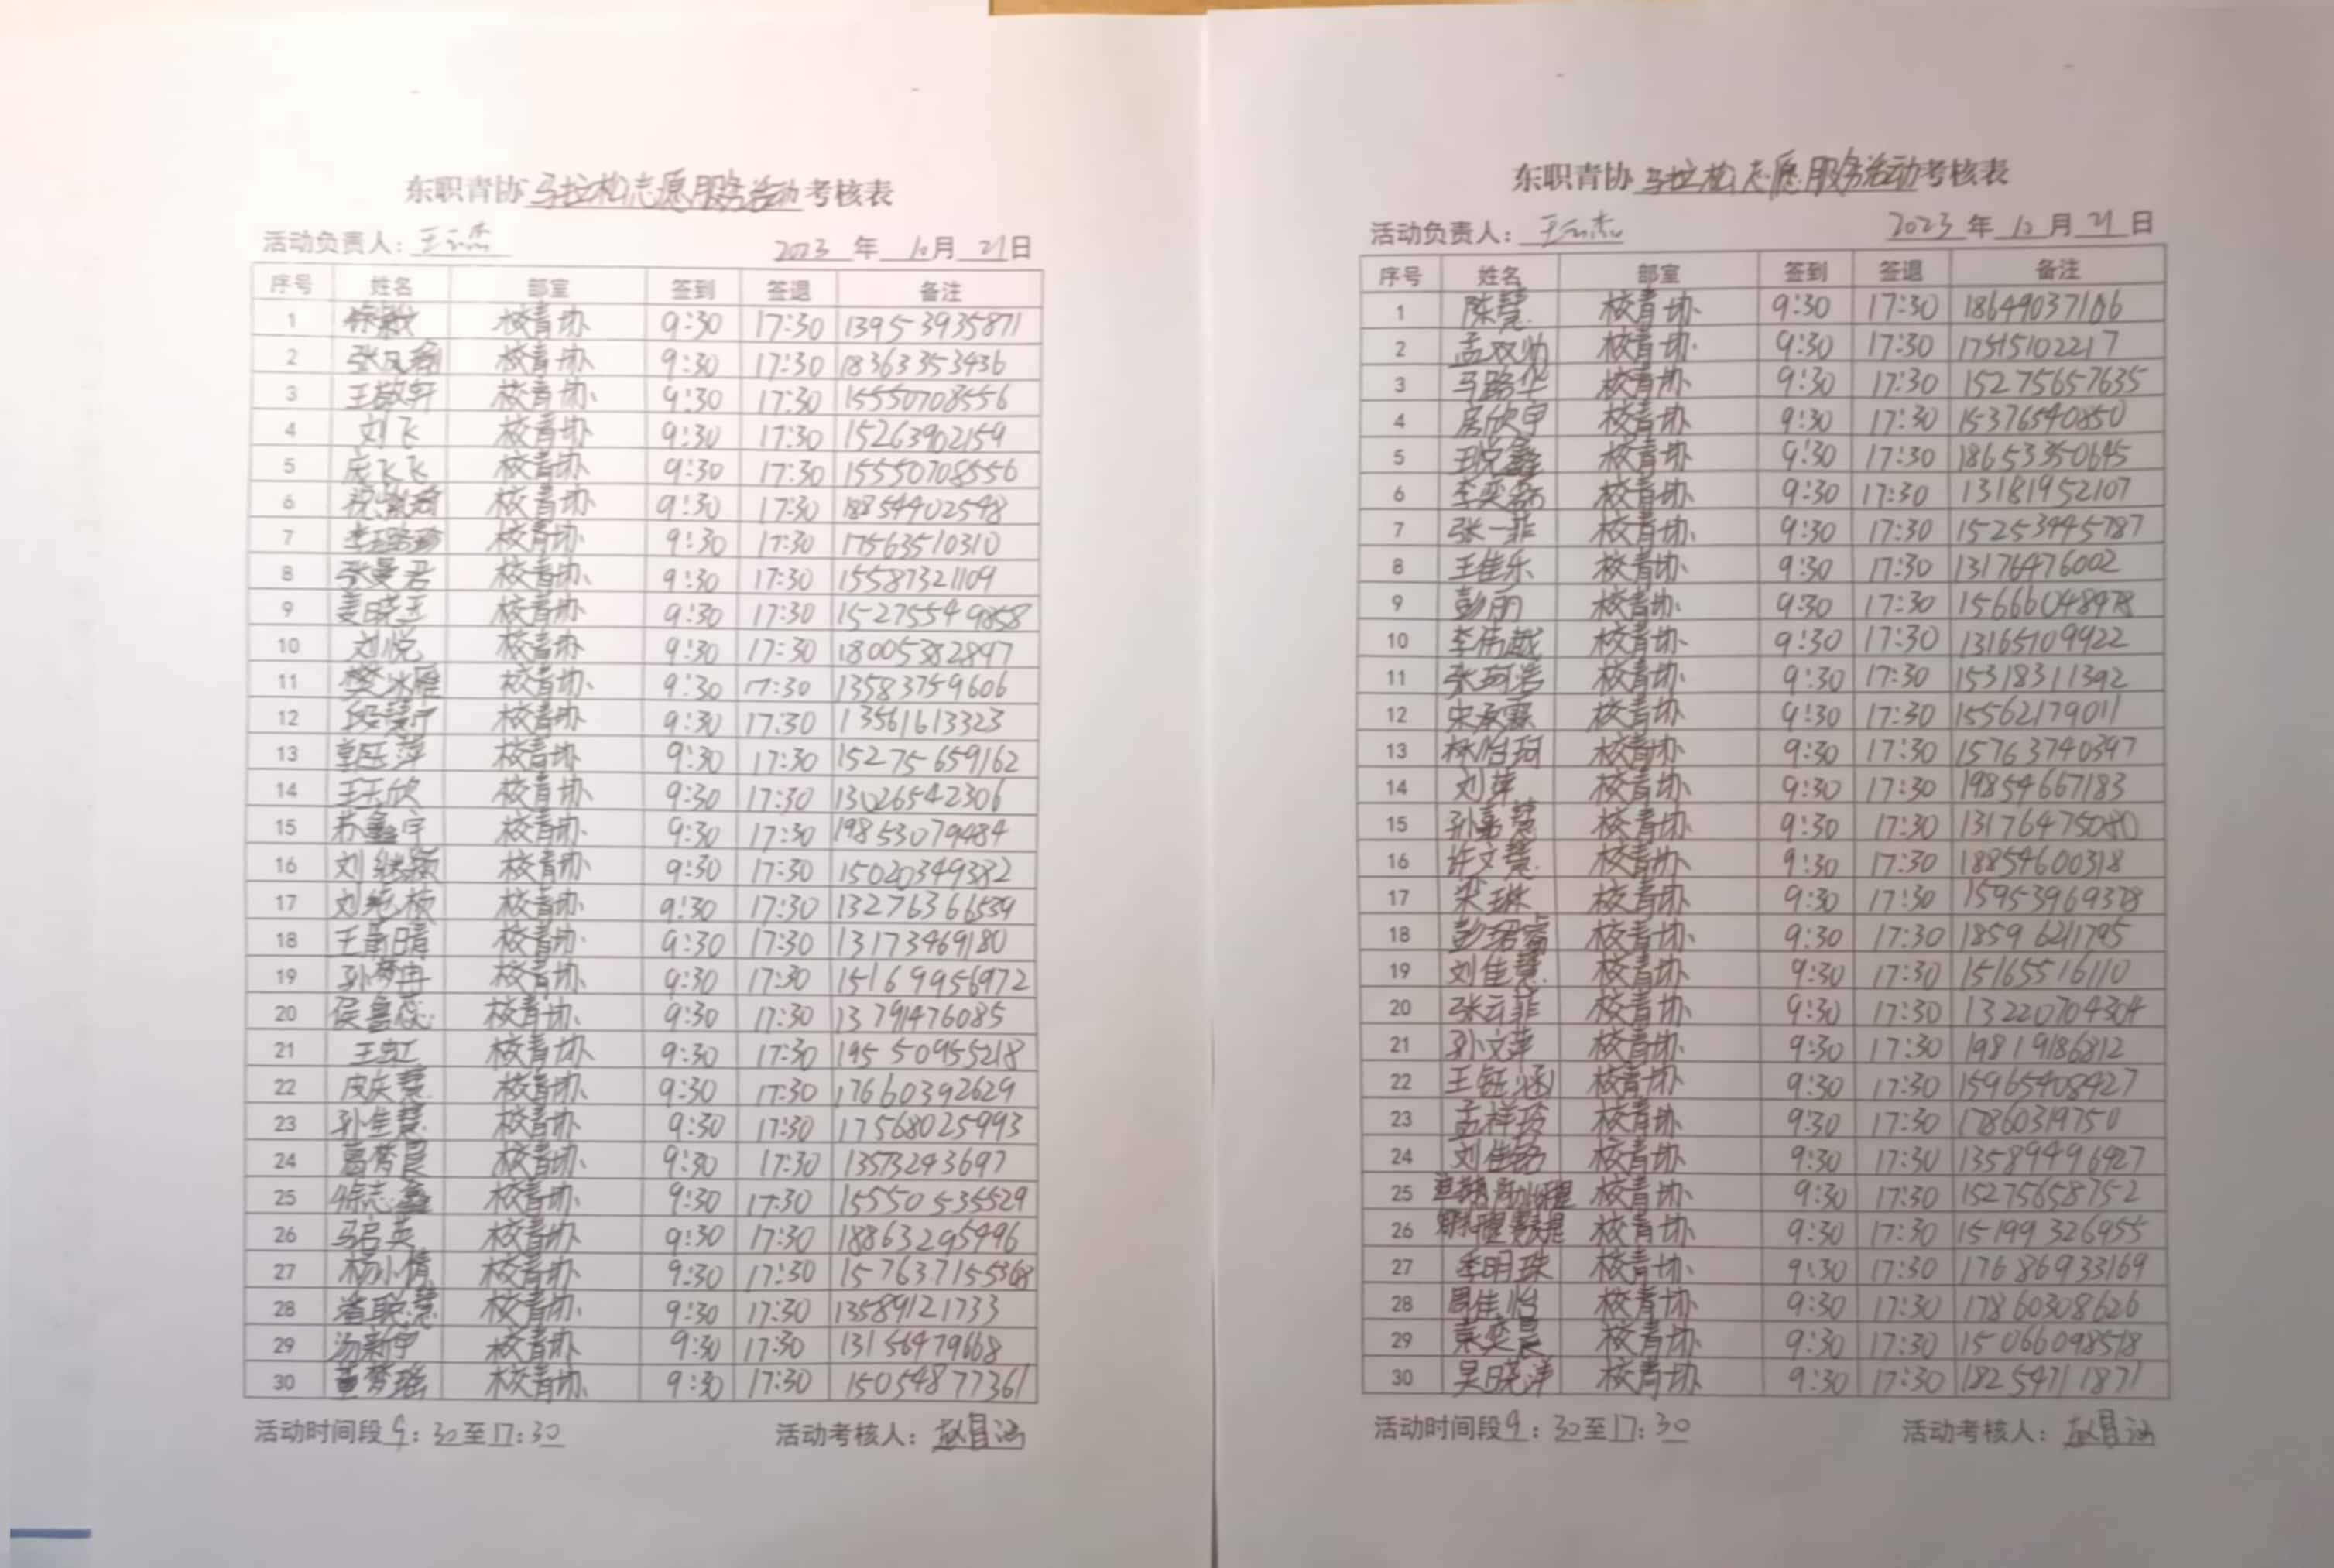 东职青协 马拉松志愿服务活动 考核表
活动负责人：王云杰 2023 年 10 月 21 日
序号 姓名 部室 签到 签退 备注
1 校青协 9:30 17:30 13953935871
2 张凤翔 校青协 9:30 17:30 18363353436
3 王敬轩 校青协 9:30 17:30 15550708556
4 刘飞 校青协 9:30 17:30 15263902159
5 庞飞飞 校青协 9:30 17:30 15550708556
6 校青协 9:30 17:30 18854402548
7 校青协 9:30 17:30 17563510310
8 张曼君 校青协 9:30 17:30 15587321109
9 姜晓玉 校青协 9:30 17:30 15275549858
10 刘悦 校青协 9:30 17:30 18005382897
11 樊冰雁 校青协 9:30 17:30 13583759606
12 校青协 9:30 17:30 13561613323
13 校青协 9:30 17:30 15275659162
14 王玉欣 校青协 9:30 17:30 13026542306
15 苏鑫宇 校青协 9:30 17:30 19853079484
16 刘继颖 校青协 9:30 17:30 15020349382
17 刘纯栋 校青协 9:30 17:30 13276366539
18 校青协 9:30 17:30 13173469180
19 孙梦冉 校青协 9:30 17:30 15169956972
20 侯鲁蕊 校青协 9:30 17:30 13791476085
21 王虹 校青协 9:30 17:30 19550955218
22 皮庆慧 校青协 9:30 17:30 17660392629
23 孙佳慧 校青协 9:30 17:30 17568025993
24 葛梦晨 校青协 9:30 17:30 13573293697
25 徐志鑫 校青协 9:30 17:30 15550535529
26 马启英 校青协 9:30 17:30 18863295496
27 杨小倩 校青协 9:30 17:30
28 校青协 9:30 17:30 13589121733
29 汤新宇 校青协 9:30 17:30 13156479668
30 董梦瑶 校青协 9:30 17:30 15054877361
活动时间段 9：30 至 17：30 活动考核人：
东职青协 马拉松志愿服务活动 考核表
活动负责人：王云杰 2023 年 10 月 21 日
序号 姓名 部室 签到 签退 备注
1 陈慧 校青协 9:30 17:30 18649037106
2 孟双帅 校青协 9:30 17:30 17515102217
3 马路华 校青协 9:30 17:30 15275657635
4 房欣宇 校青协 9:30 17:30 15376540850
5 王悦鑫 校青协 9:30 17:30 18653350645
6 李奕磊 校青协 9:30 17:30 13181952107
7 张一菲 校青协 9:30 17:30 15253445787
8 王佳乐 校青协 9:30 17:30 13176476002
9 彭丽 校青协 9:30 17:30 15666048978
10 李伟越 校青协 9:30 17:30 13165109922
11 张珂浩 校青协 9:30 17:30 15318311392
12 宋承霖 校青协 9:30 17:30 15562179011
13 林怡珂 校青协 9:30 17:30 15763740397
14 刘萍 校青协 9:30 17:30 19854667183
15 孙嘉慧 校青协 9:30 17:30 13176475080
16 许文慧 校青协 9:30 17:30 18854600318
17 宋琳 校青协 9:30 17:30 15953969378
18 彭珺睿 校青协 9:30 17:30 18596211795
19 刘佳慧 校青协 9:30 17:30 15165516110
20 张云菲 校青协 9:30 17:30 13220704304
21 孙文萍 校青协 9:30 17:30 19819186812
22 王钰涵 校青协 9:30 17:30 15965408427
23 孟祥玲 校青协 9:30 17:30 17860319750
24 刘佳铭 校青协 9:30 17:30 13589496927
25 校青协 9:30 17:30 15275658752
26 校青协 9:30 17:30 15199326955
27 季明珠 校青协 9:30 17:30 17686933169
28 周佳怡 校青协 9:30 17:30 17860308626
29 袁奕晨 校青协 9:30 17:30 15066098518
30 吴晓洋 校青协 9:30 17:30 18254711871
活动时间段 9：30 至 17：30 活动考核人：